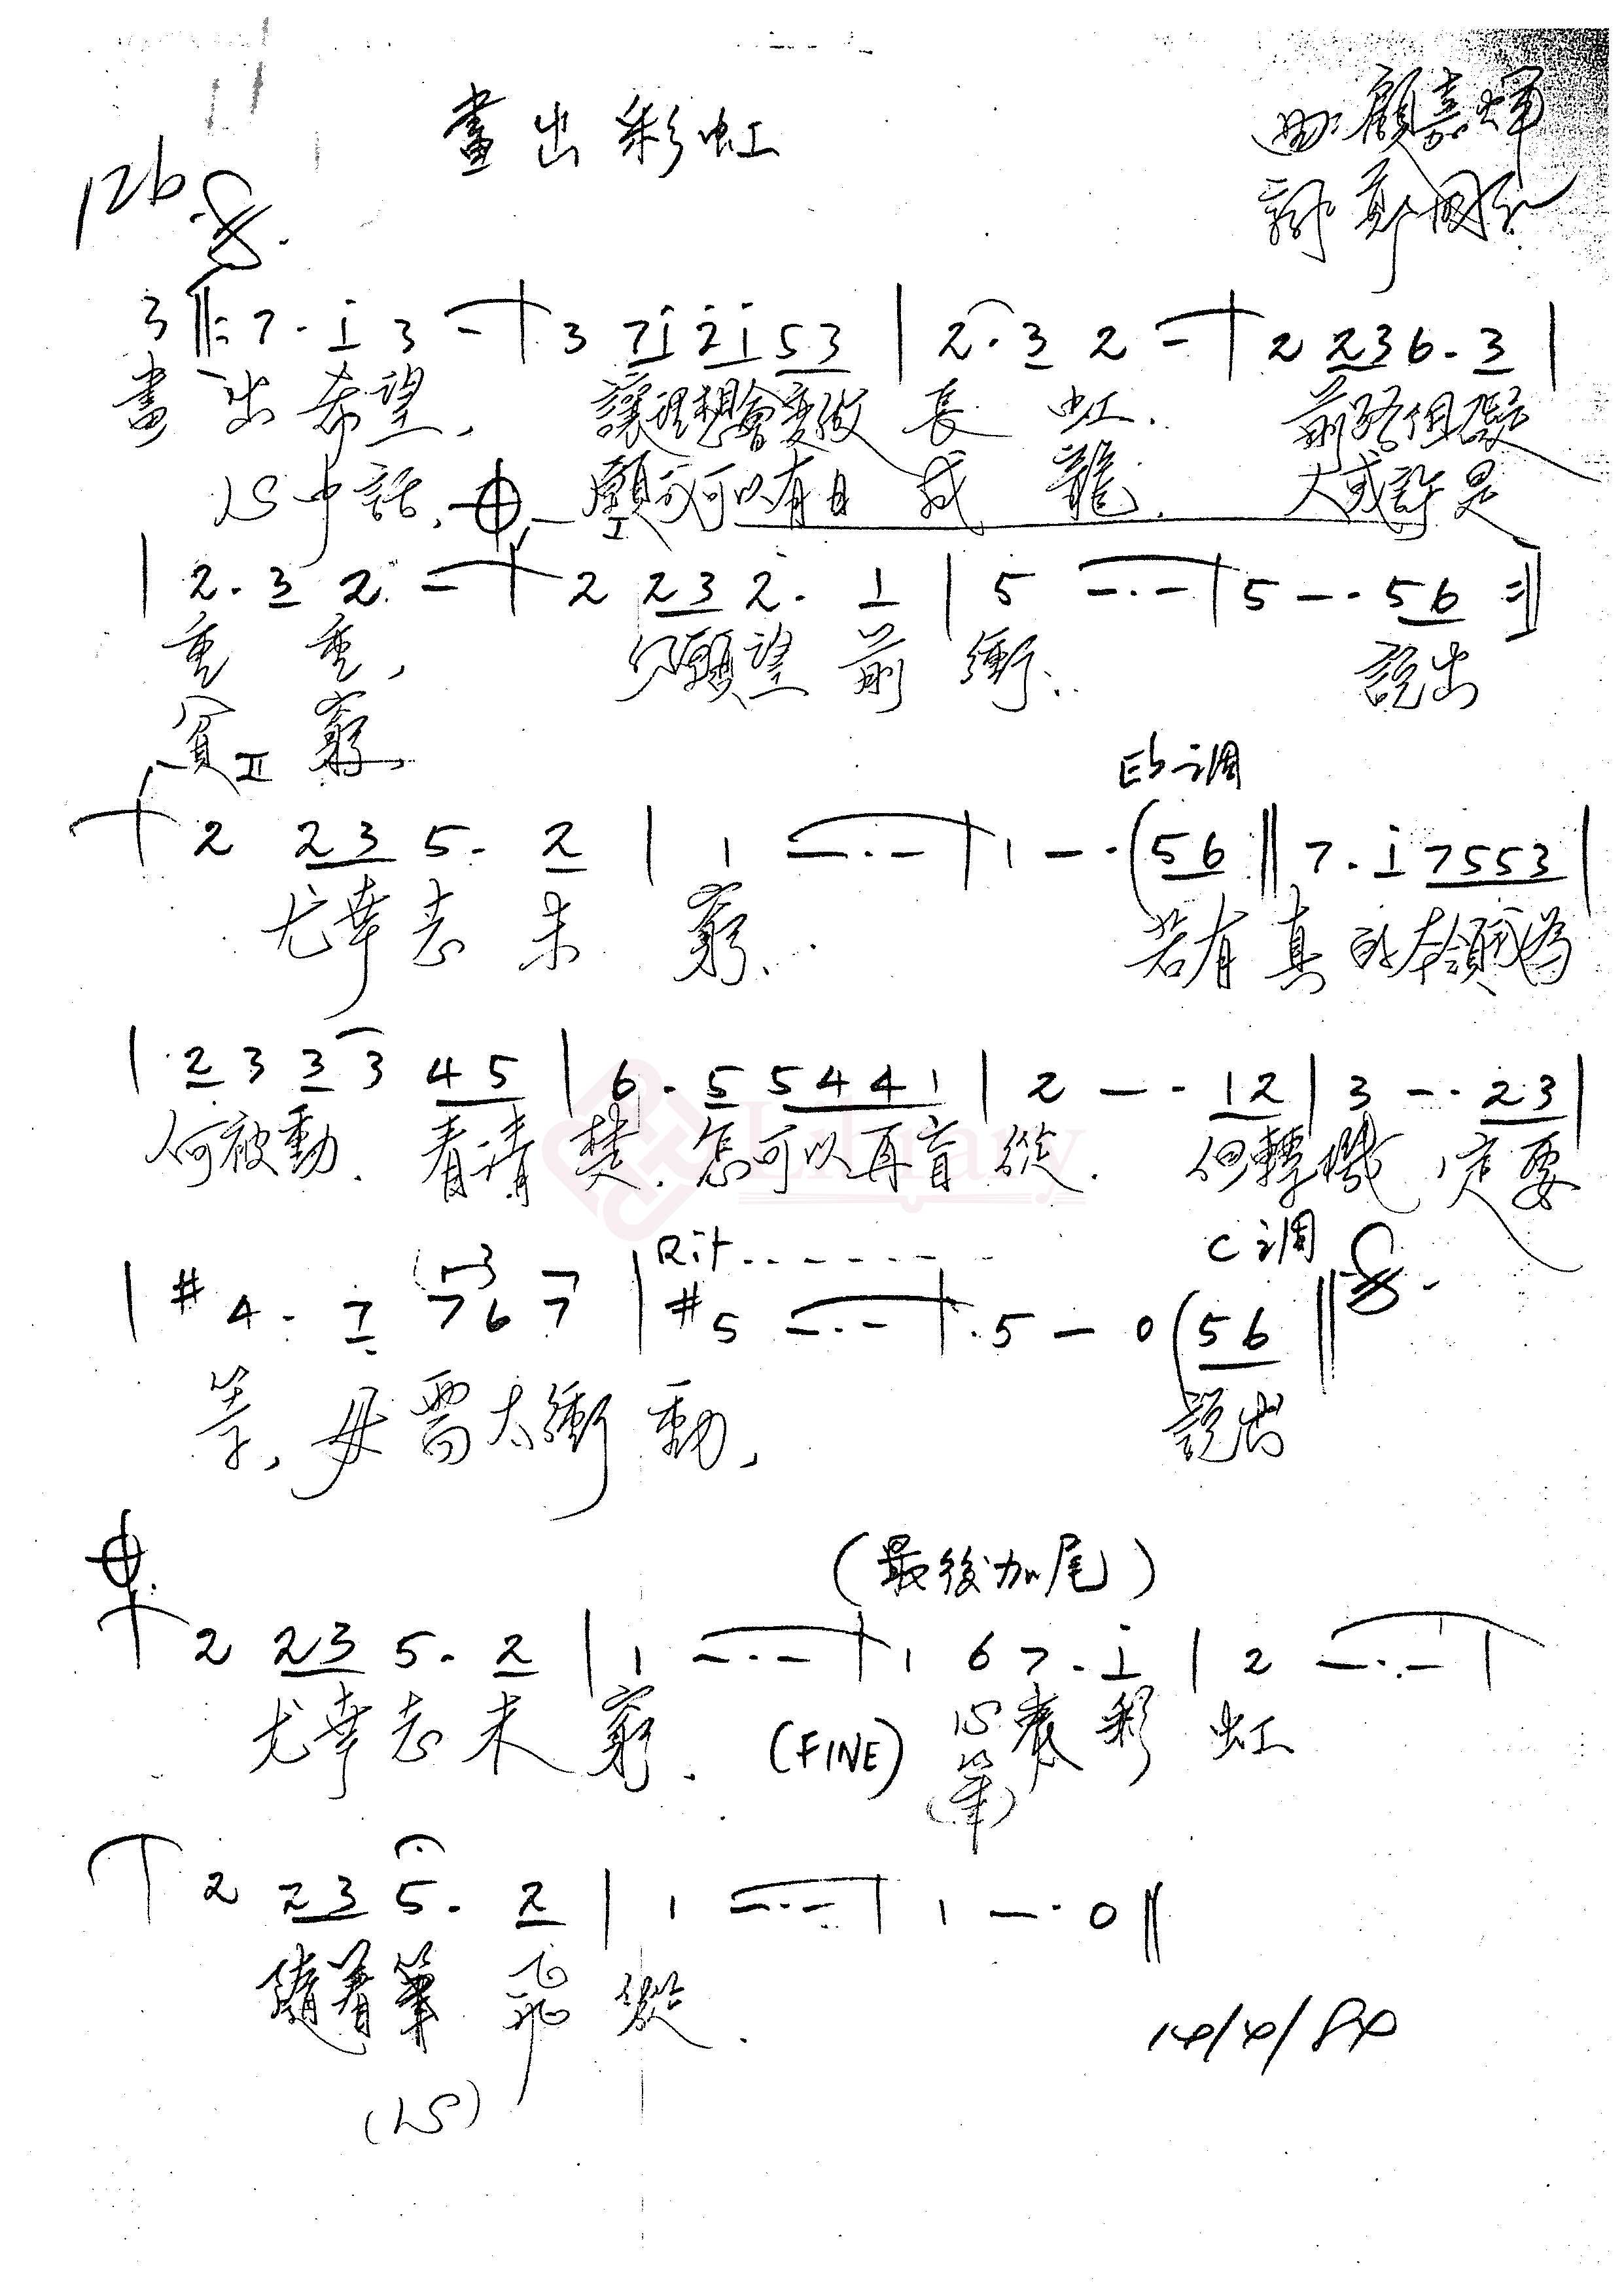 畫出彩虹
曲:顧嘉煇
詞 鄭國江
126
3 ‖: 7 · i 3 - | 3 7i 2i 53 | 2 · 3 2 - | 2 236 · 3 |
畫出希望, 讓理想會變做長虹. 前路但礙
心中話, 願可可以有日成龍. 人或許是
I
| 2 · 3 2 - | 2 23 2 · 1 | 5 - · - | 5 - · 56 :‖
重重, 只願望前衝. 說出
貧窮,
II
E♭調
2 23 5 · 2 | 1 - · - | 1 - · (56 ‖ 7 · i 7553 |
尤幸志未窮. 若有真的本領我為
| 2 3 3 3 45 | 6 · 5 5441 | 2 - · 12 | 3 - · 23 |
何被動. 看清楚. 怎可以再盲從. 但轉機一定要
Library
Rit........ C調
| #4 · 7 767 | #5 - · - | 5 - 0 (56 ‖
等, 毋需太衝動, 說出
(最後加尾)
2 23 5 · 2 | 1 - · - | 1 6 7 · i | 2 - · - |
尤幸志未窮. (FINE) 心裏彩虹
(筆)
2 23 5 · 2 | 1 - · - | 1 - · 0 ‖
隨着筆飛縱.
(心)
14/4/84